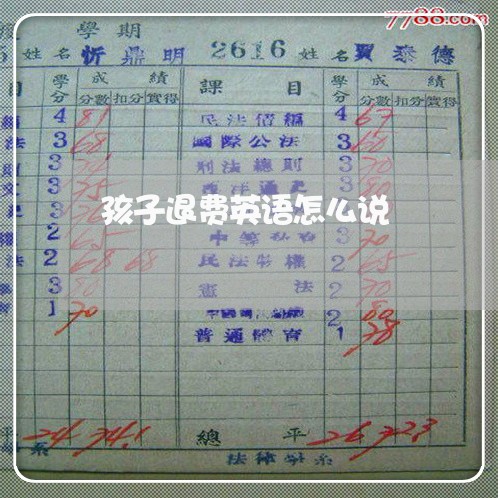 7788.com
學期
姓名 忻鼎明 2616 姓名 賈泰德
目 學分 成績 課目 學分 成績
分數 扣分 實得 分數 扣分 實得
4 81 民法債編 4 67
法 3 68 國際公法 3 60
3 刑法總則 3 70
3 75 西洋通史 3 80
孩子退费英语怎么说
2 65 3 70
法 2 68 68 民法物權 2 65
3 80 憲法 2 70
1 70 2 80
普通體育 1 78
平 24 74.1 總平 26 72.3
系 法律學系